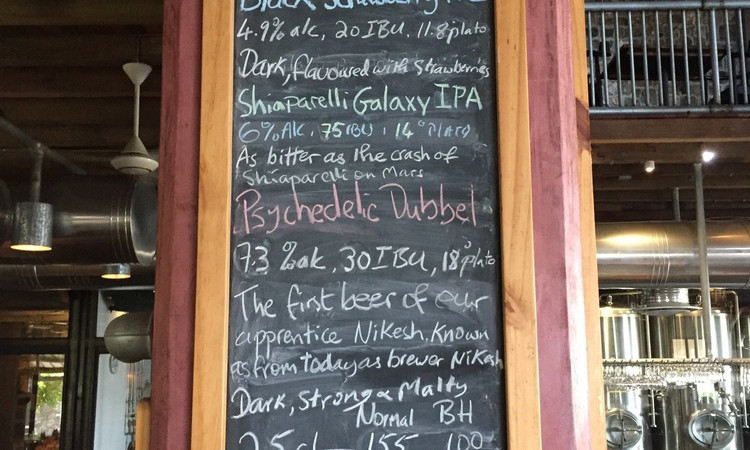 Black Strawberry
4.9% alc, 20 IBU, 11.8°plato
Dark, flavoured with Strawberries
Shiaparelli Galaxy IPA
6% Alc, 75 IBU, 14°PLATO
As bitter as the crash of
Shiaparelli on Mars
Psychedelic Dubbel
7.3 % alc, 30 IBU, 18°plato
The first beer of our
apprentice Nikesh, Known
as from today as brewer Nikesh
Dark, Strong & Malty
Normal BH
25cl 155 100